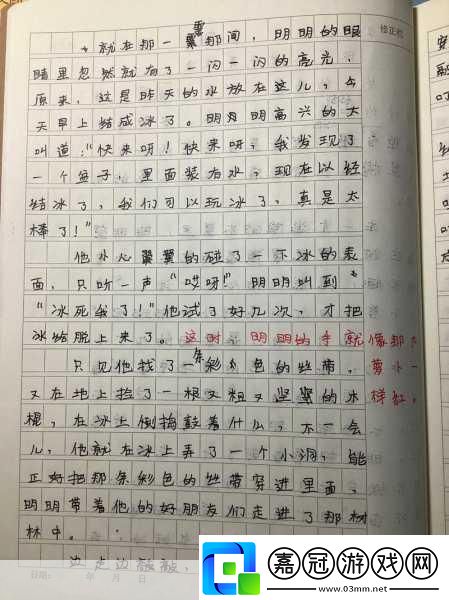 就在那一霎那间，明明的眼
睛里忽然就有了一闪一闪的亮光，
原来，这是昨天的水放在这儿，今
天早上结成冰了。明明明高兴的大
叫道："快来呀！快来呀，我发现了
一个盆子，里面装有水，现在以经
结冰了，我们可以玩冰了，真是太
棒了！"
他小心翼翼的碰了一下冰的表
面，只听一声"哎呀！"明明叫到
"冰死我了！"他试了好几次，才把
冰给脱上来了。这时，明明的手就像那
只见他找了一条彩色的丝带，
又在地上捡了一根又粗又坚的木
棍，在冰上倒捣鼓着什么，不一会
儿，他就在冰上弄了一个小洞，能
正好把那条彩色的丝带穿进里面，
明明带着他的好朋友们走进了那树
林中。
边走边敲敲，
修正栏
样红，
日期： 年 月 日
嘉冠游戏网
www.03mm.net